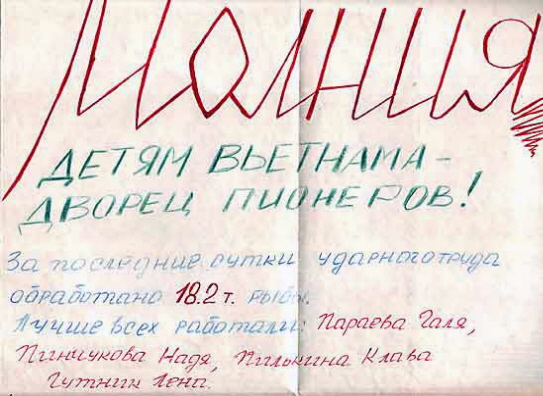 Молния
ДЕТЯМ ВЬЕТНАМА -
ДВОРЕЦ ПИОНЕРОВ!
За последние сутки ударного труда
обработано 18.2 т. рыбы.
Лучше всех работали: Параева Галя,
Пинчукова Надя, Пилькина Клава
Гутник Лена.